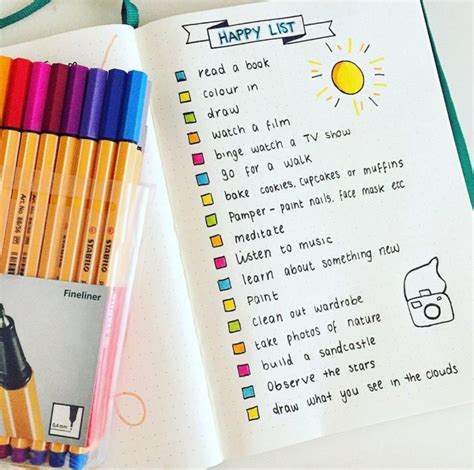 HAPPY LIST
read a book
colour in
draw
watch a film
binge watch a TV show
go for a walk
bake cookies, cupcakes or muffins
Pamper - paint nails, face mask etc
meditate
Listen to music
learn about something new
Paint
clean out wardrobe
take photos of nature
build a sandcastle
Observe the stars
draw what you see in the clouds
STABILO
Art. No 88/56
STABILO
Fineliner
0,4 mm